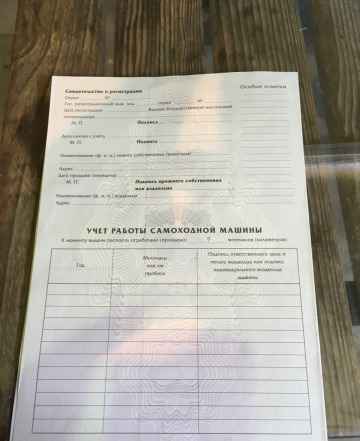 Свидетельство о регистрации
Особые отметки
Серия №
Гос. регистрационный знак или
серия №
дата регистрации
Выдано Государственной инспекцией
М. П.
Подпись
Дата снятия с учета
М. П.
Подпись
Наименование (ф. и. о.) нового собственника
Адрес
Дата продажи (передачи)
М. П.
Подпись прежнего собственника
или владельца
Наименование (ф. и. о.) владельца
Адрес
УЧЕТ РАБОТЫ САМОХОДНОЙ МАШИНЫ
К моменту выдачи паспорта отработано (пройдено)
Год
Моточасы
или км
пробега
Подпись ответственного лица и
печать владельца или подпись
индивидуального владельца
машины